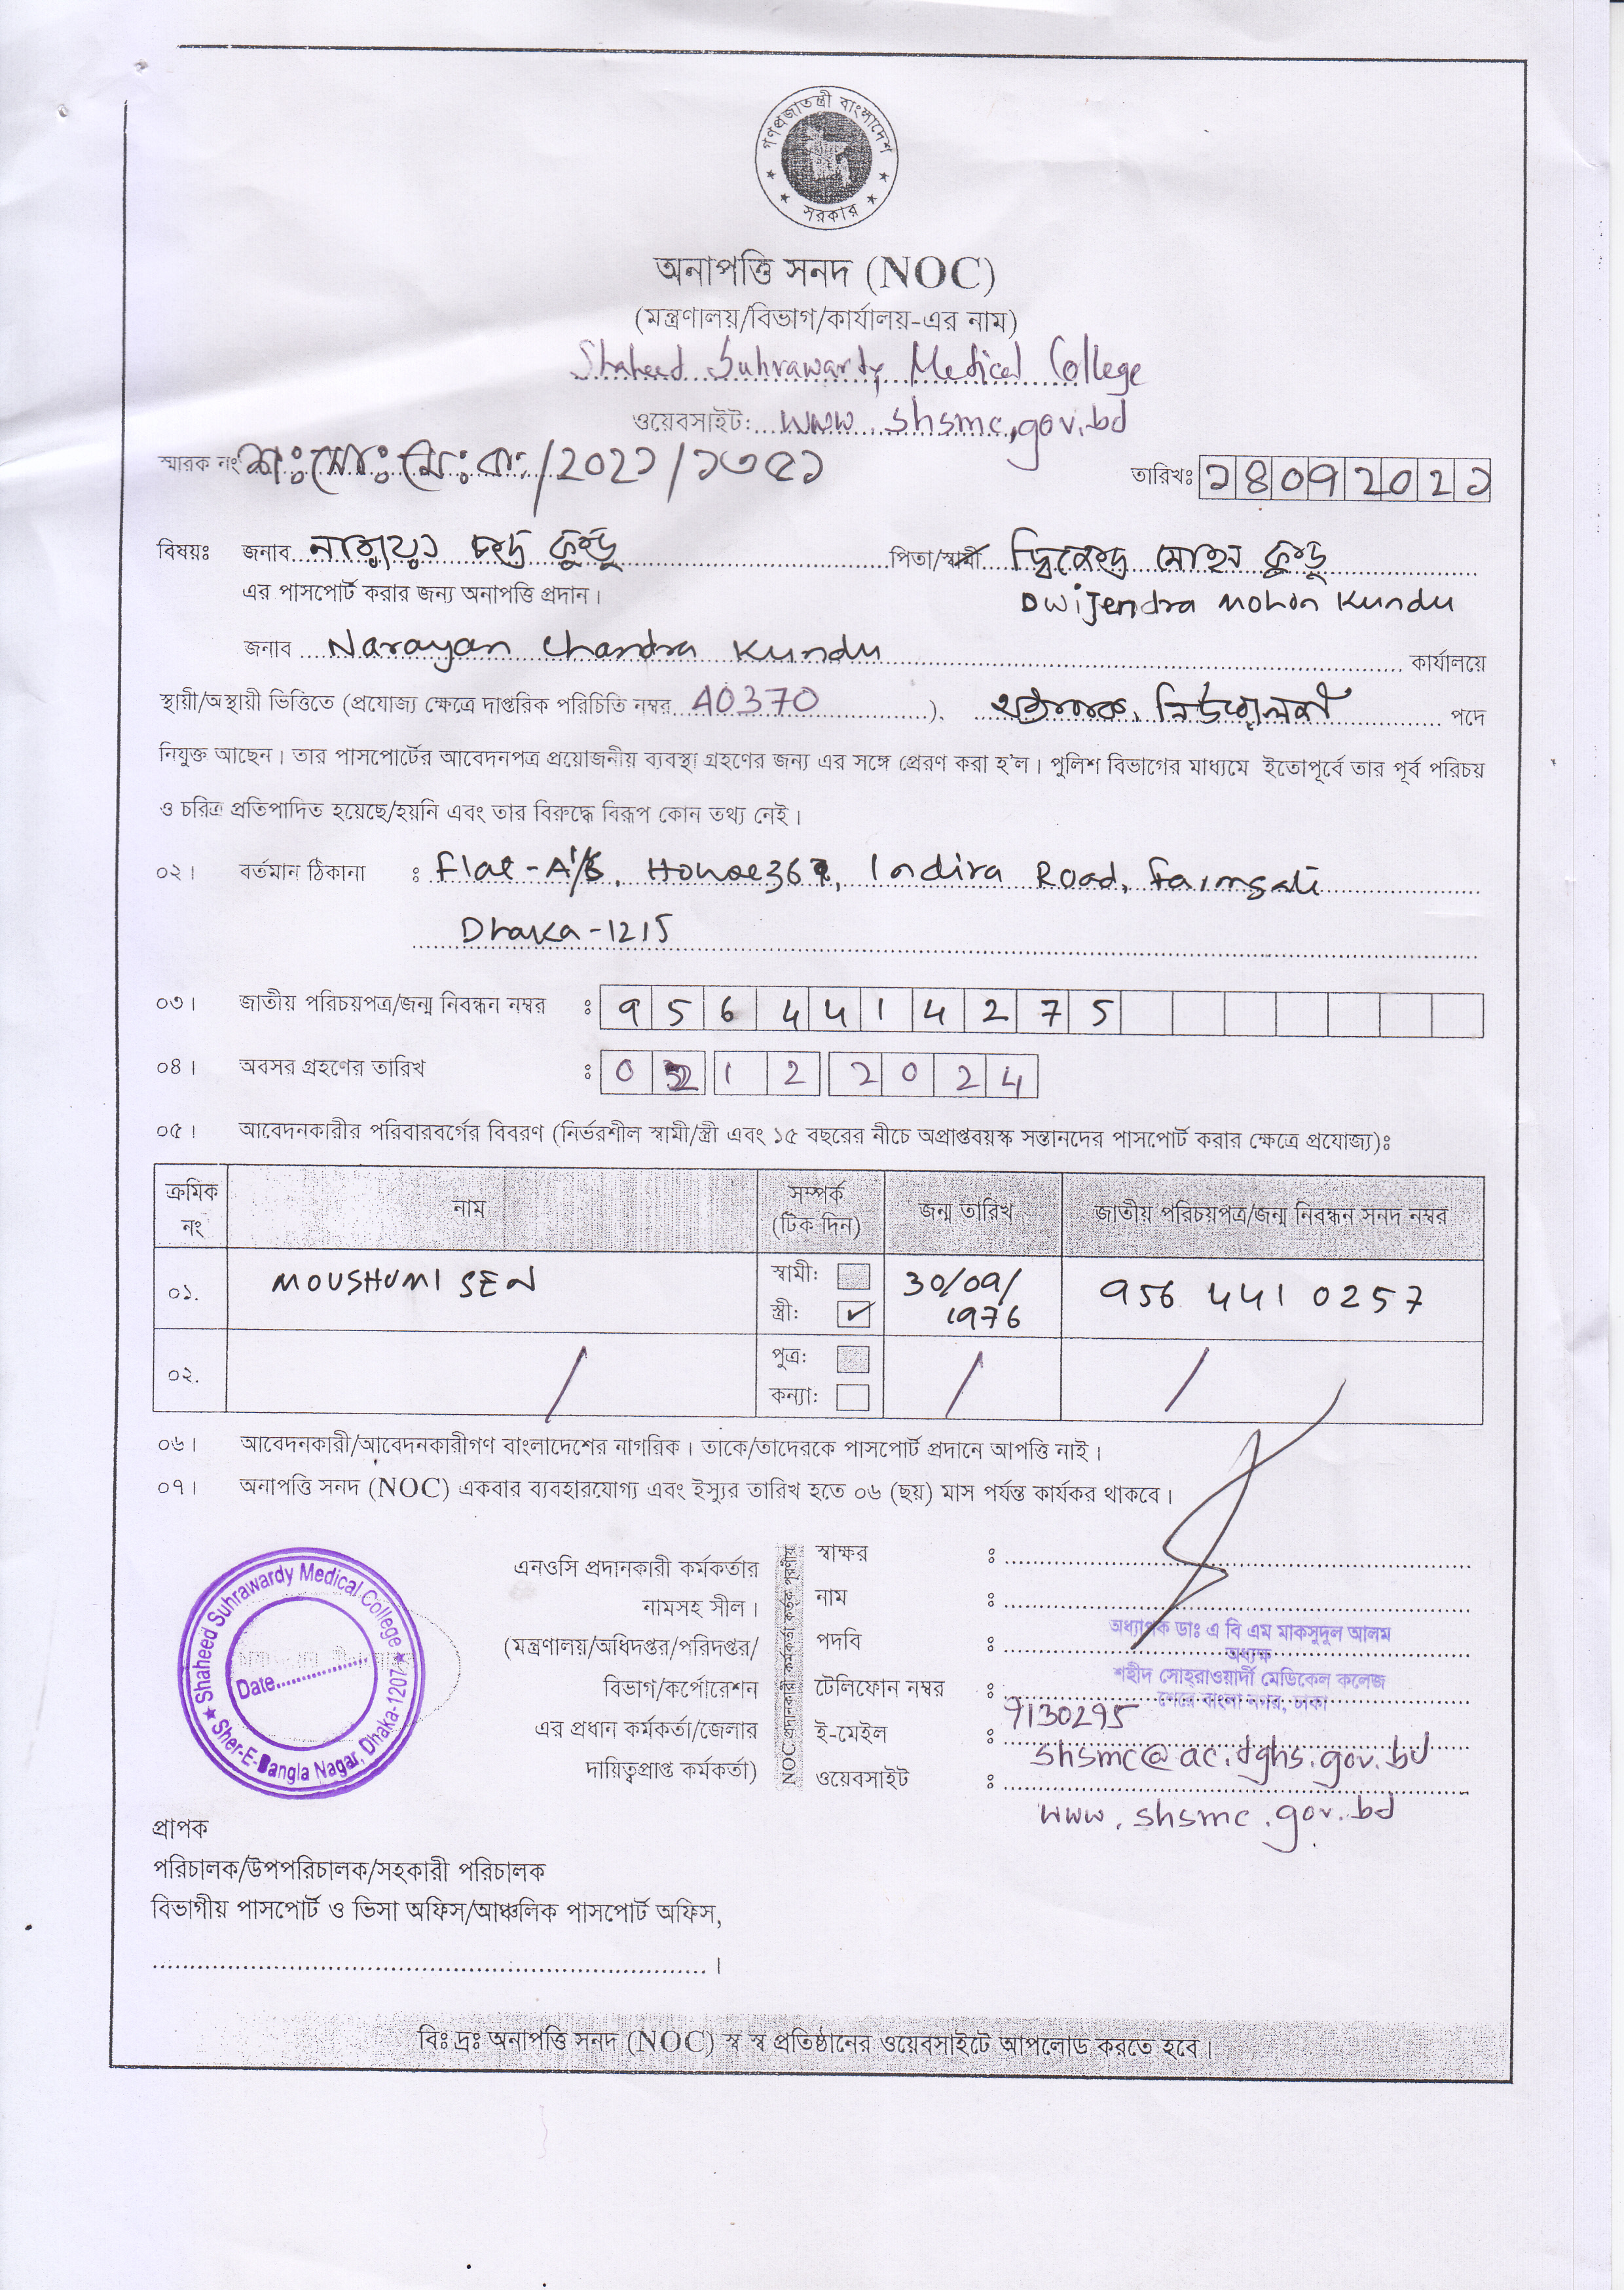 গণপ্রজাতন্ত্রী বাংলাদেশ
সরকার
অনাপত্তি সনদ (NOC)
(মন্ত্রণালয়/বিভাগ/কার্যালয়-এর নাম)
Shaheed Suhrawardy Medical College
ওয়েবসাইট: www.shsmc.gov.bd
স্মারক নং শ:সো:মে:ক:/2021/১৩৫১ তারিখঃ ১৪০৯২০২১
বিষয়ঃ জনাব নারায়ণ চন্দ্র কুন্ডু পিতা/স্বামী দ্বিজেন্দ্র মোহন কুন্ডু
এর পাসপোর্ট করার জন্য অনাপত্তি প্রদান। Dwijendra Mohon Kundu
জনাব Narayan Chandra Kundu কার্যালয়ে
স্থায়ী/অস্থায়ী ভিত্তিতে (প্রযোজ্য ক্ষেত্রে দাপ্তরিক পরিচিতি নম্বর 40370 ). নিউরোলজী পদে
নিযুক্ত আছেন। তার পাসপোর্টের আবেদনপত্র প্রয়োজনীয় ব্যবস্থা গ্রহণের জন্য এর সঙ্গে প্রেরণ করা হ'ল। পুলিশ বিভাগের মাধ্যমে ইতোপূর্বে তার পূর্ব পরিচয়
ও চরিত্র প্রতিপাদিত হয়েছে/হয়নি এবং তার বিরুদ্ধে বিরূপ কোন তথ্য নেই।
০২। বর্তমান ঠিকানা : Flat - House Indira Road, Farmgate
Dhaka -1215
০৩। জাতীয় পরিচয়পত্র/জন্ম নিবন্ধন নম্বর : 9564414275
০৪। অবসর গ্রহণের তারিখ : 02 12 2024
০৫। আবেদনকারীর পরিবারবর্গের বিবরণ (নির্ভরশীল স্বামী/স্ত্রী এবং ১৫ বছরের নীচে অপ্রাপ্তবয়স্ক সন্তানদের পাসপোর্ট করার ক্ষেত্রে প্রযোজ্য)ঃ
ক্রমিক নং নাম সম্পর্ক (টিক দিন) জন্ম তারিখ জাতীয় পরিচয়পত্র/জন্ম নিবন্ধন সনদ নম্বর
০১. MOUSHUMI SEN স্বামী: 30/09/ 956 441 0257
স্ত্রী: ✓ 1976
০২. পুত্র:
কন্যা:
০৬। আবেদনকারী/আবেদনকারীগণ বাংলাদেশের নাগরিক। তাকে/তাদেরকে পাসপোর্ট প্রদানে আপত্তি নাই।
০৭। অনাপত্তি সনদ (NOC) একবার ব্যবহারযোগ্য এবং ইস্যুর তারিখ হতে ০৬ (ছয়) মাস পর্যন্ত কার্যকর থাকবে।
★ Shaheed Suhrawardy Medical College ★
Date
Sher-E-Bangla Nagar, Dhaka-1207
এনওসি প্রদানকারী কর্মকর্তার
নামসহ সীল।
(মন্ত্রণালয়/অধিদপ্তর/পরিদপ্তর/
বিভাগ/কর্পোরেশন
এর প্রধান কর্মকর্তা/জেলার
দায়িত্বপ্রাপ্ত কর্মকর্তা)
NOC প্রদানকারী কর্মকর্তা কর্তৃক পূরণীয়
স্বাক্ষর :
নাম :
পদবি :
টেলিফোন নম্বর :
ই-মেইল :
ওয়েবসাইট :
অধ্যাপক ডাঃ এ বি এম মাকসুদুল আলম
অধ্যক্ষ
শহীদ সোহ্‌রাওয়ার্দী মেডিকেল কলেজ
শেরে বাংলা নগর, ঢাকা
9130295
shsmc@ac.dghs.gov.bd
www.shsmc.gov.bd
প্রাপক
পরিচালক/উপপরিচালক/সহকারী পরিচালক
বিভাগীয় পাসপোর্ট ও ভিসা অফিস/আঞ্চলিক পাসপোর্ট অফিস,
বিঃ দ্রঃ অনাপত্তি সনদ (NOC) স্ব স্ব প্রতিষ্ঠানের ওয়েবসাইটে আপলোড করতে হবে।